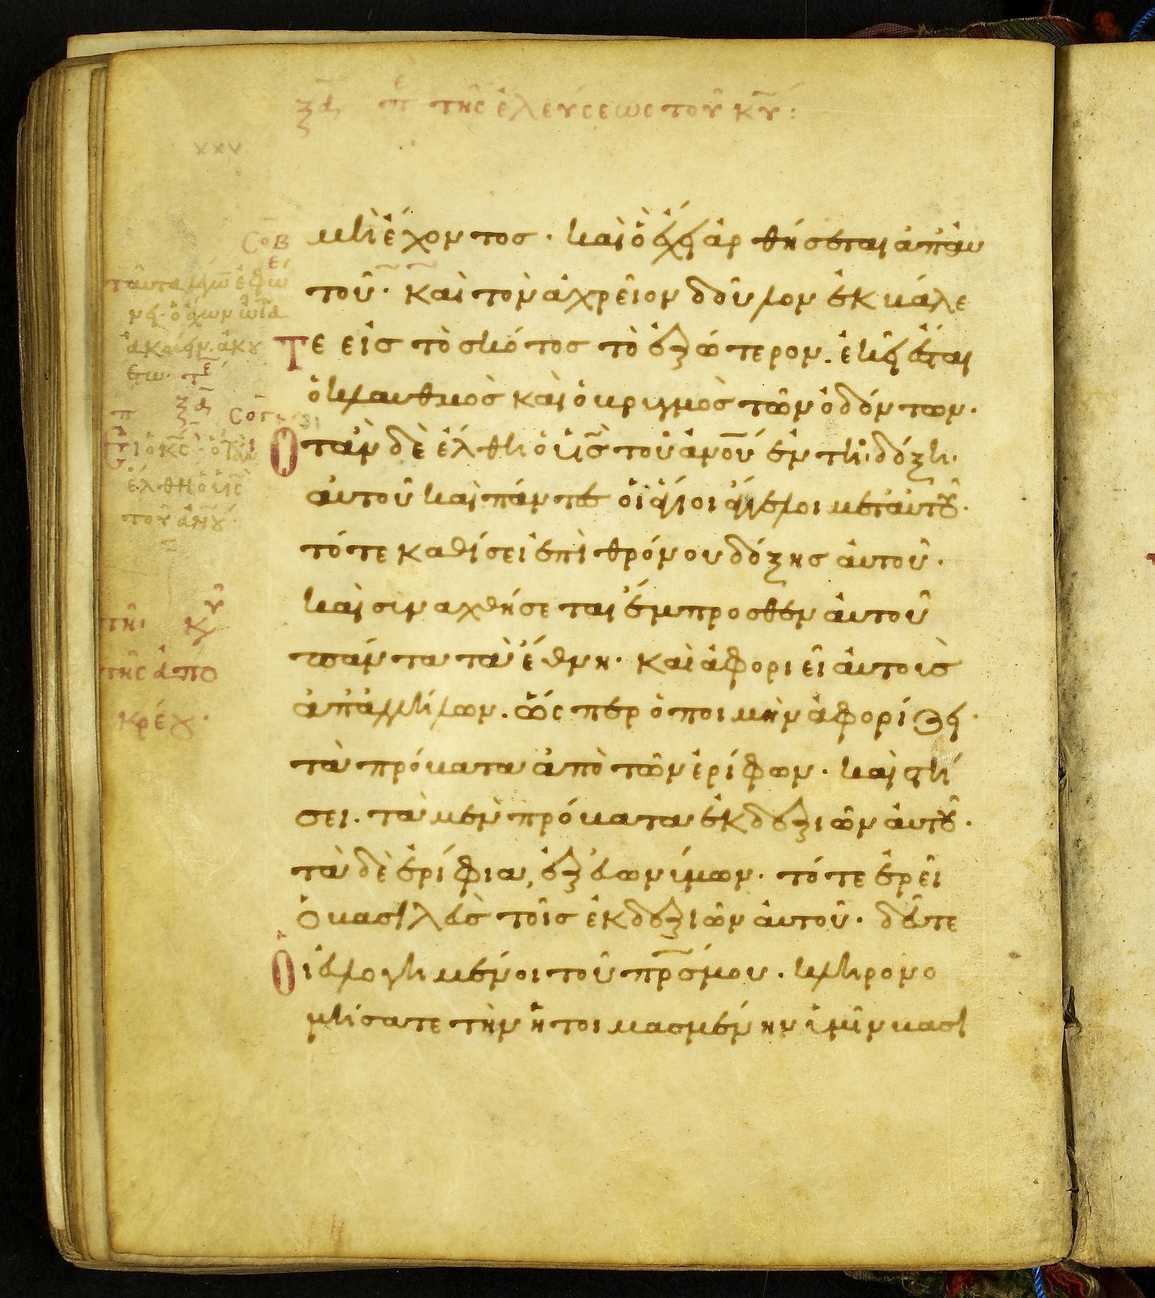 ξδ π τῆς ἐλεύσεως τοῦ κυ:
xxv
μὴ ἔχοντος· καὶ ὃ ἔχει ἀρθήσεται ἀπ' αυ
τοῦ· καὶ τὸν ἀχρεῖον δοῦλον ἐκβάλε
τε εἰς τὸ σκότος τὸ ἐξώτερον. ἐκεῖ ἔσται
ὁ κλαυθμὸς καὶ ὁ βριγμὸς τῶν ὀδόντων·
Οταν δὲ ἐλθη ὁ υἱσ τοῦ ανου ἐν τῆ δόξη·
αὐτοῦ καὶ πάντες οἱ ἅγιοι ἄγγελοι μετ' αὐτοῦ·
τότε καθίσει ἐπὶ θρόνου δόξης αὐτοῦ·
καὶ σιναχθήσεται ἔμπροσθεν αὐτοῦ
πάντα τὰ ἔθνη· καὶ ἀφοριεῖ αὐτοὶς
ἀπ' ἀλλήλων. ὥσπερ ὁ ποιμὴν ἀφορίζει·
τὰ πρόβατα ἀπὸ τῶν ἐρίφων· καὶ στή
σει. τὰ μὲν πρόβατα ἐκ δεξιῶν αὐτοῦ·
τὰ δὲ ἐρίφια, ἐξ εωνίμων· τότε ἐρεῖ
ὁ βασιλεὺς τοῖς ἐκ δεξιῶν αὐτοῦ· δεῦτε
Οἱ ἐλογημένοι τοῦ πρσ μου. κληρονο
μήσατε τὴν ἡτοιμασμένην ἱμῖν βασι
ταῦτα
ὁ ἔχων ὦτα
ἀκούειν ἀκου
ἔλθη ὁ υἱς
τοῦ ανου
τῆ κυ
τῆς ἀπο
κρέου·